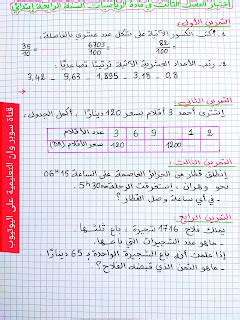 إختبار الفصل الثالث في مادة الرياضيات السنة الرابعة إبتدائي
التمرين الأول:
1. أكتب الكسور الآتية على شكل عدد عشري بالفاصلة.
36/10 = 6703/100 = 82/100 =
رتب الأعداد العشرية الآتية ترتيبا تصاعديا.
3,42 - 9,63 - 1,895 - 3,18 - 0,8
التمرين الثاني:
إشترى أحمد 3 أقلام بسعر 120 دينارا. أكمل الجدول:
عدد الأقلام 3 6 9 1 2
سعر الأقلام (DA) 120 1200
التمرين الثالث:
إنطلق قطار من الجزائر العاصمة على الساعة 06h15
نحو وهران. إستغرقت الرحلة 5h30
- في أي ساعة وصل القطار؟
التمرين الرابع
يملك فلاح 1716 شجيرة، باع ثلثها.
- ما هو عدد الشجيرات التي باعها.
إذا علمت أنه باع الشجيرة الواحدة بـ 65 دينارا
- ما هو الثمن الذي قبضه الفلاح؟
قناة سوروان التعليمية على اليوتيوب